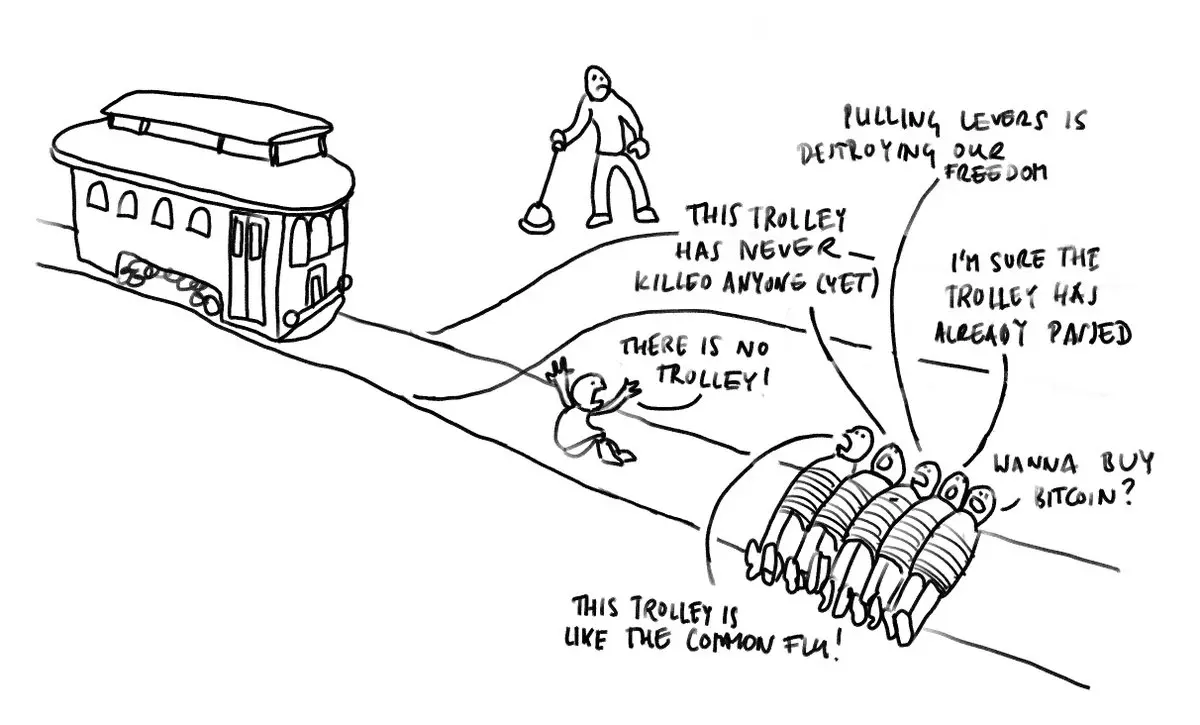 PULLING LEVERS IS
DESTROYING OUR
FREEDOM
THIS TROLLEY
HAS NEVER
KILLED ANYONE (YET)
I'M SURE THE
TROLLEY HAS
ALREADY PASSED
THERE IS NO
TROLLEY!
WANNA BUY
BITCOIN?
THIS TROLLEY IS
LIKE THE COMMON FLU!